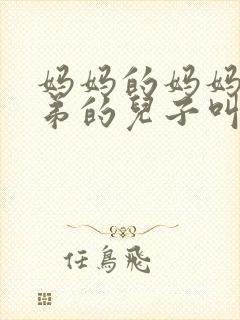 妈妈的妈妈
弟的兒子叫
任鳥飛